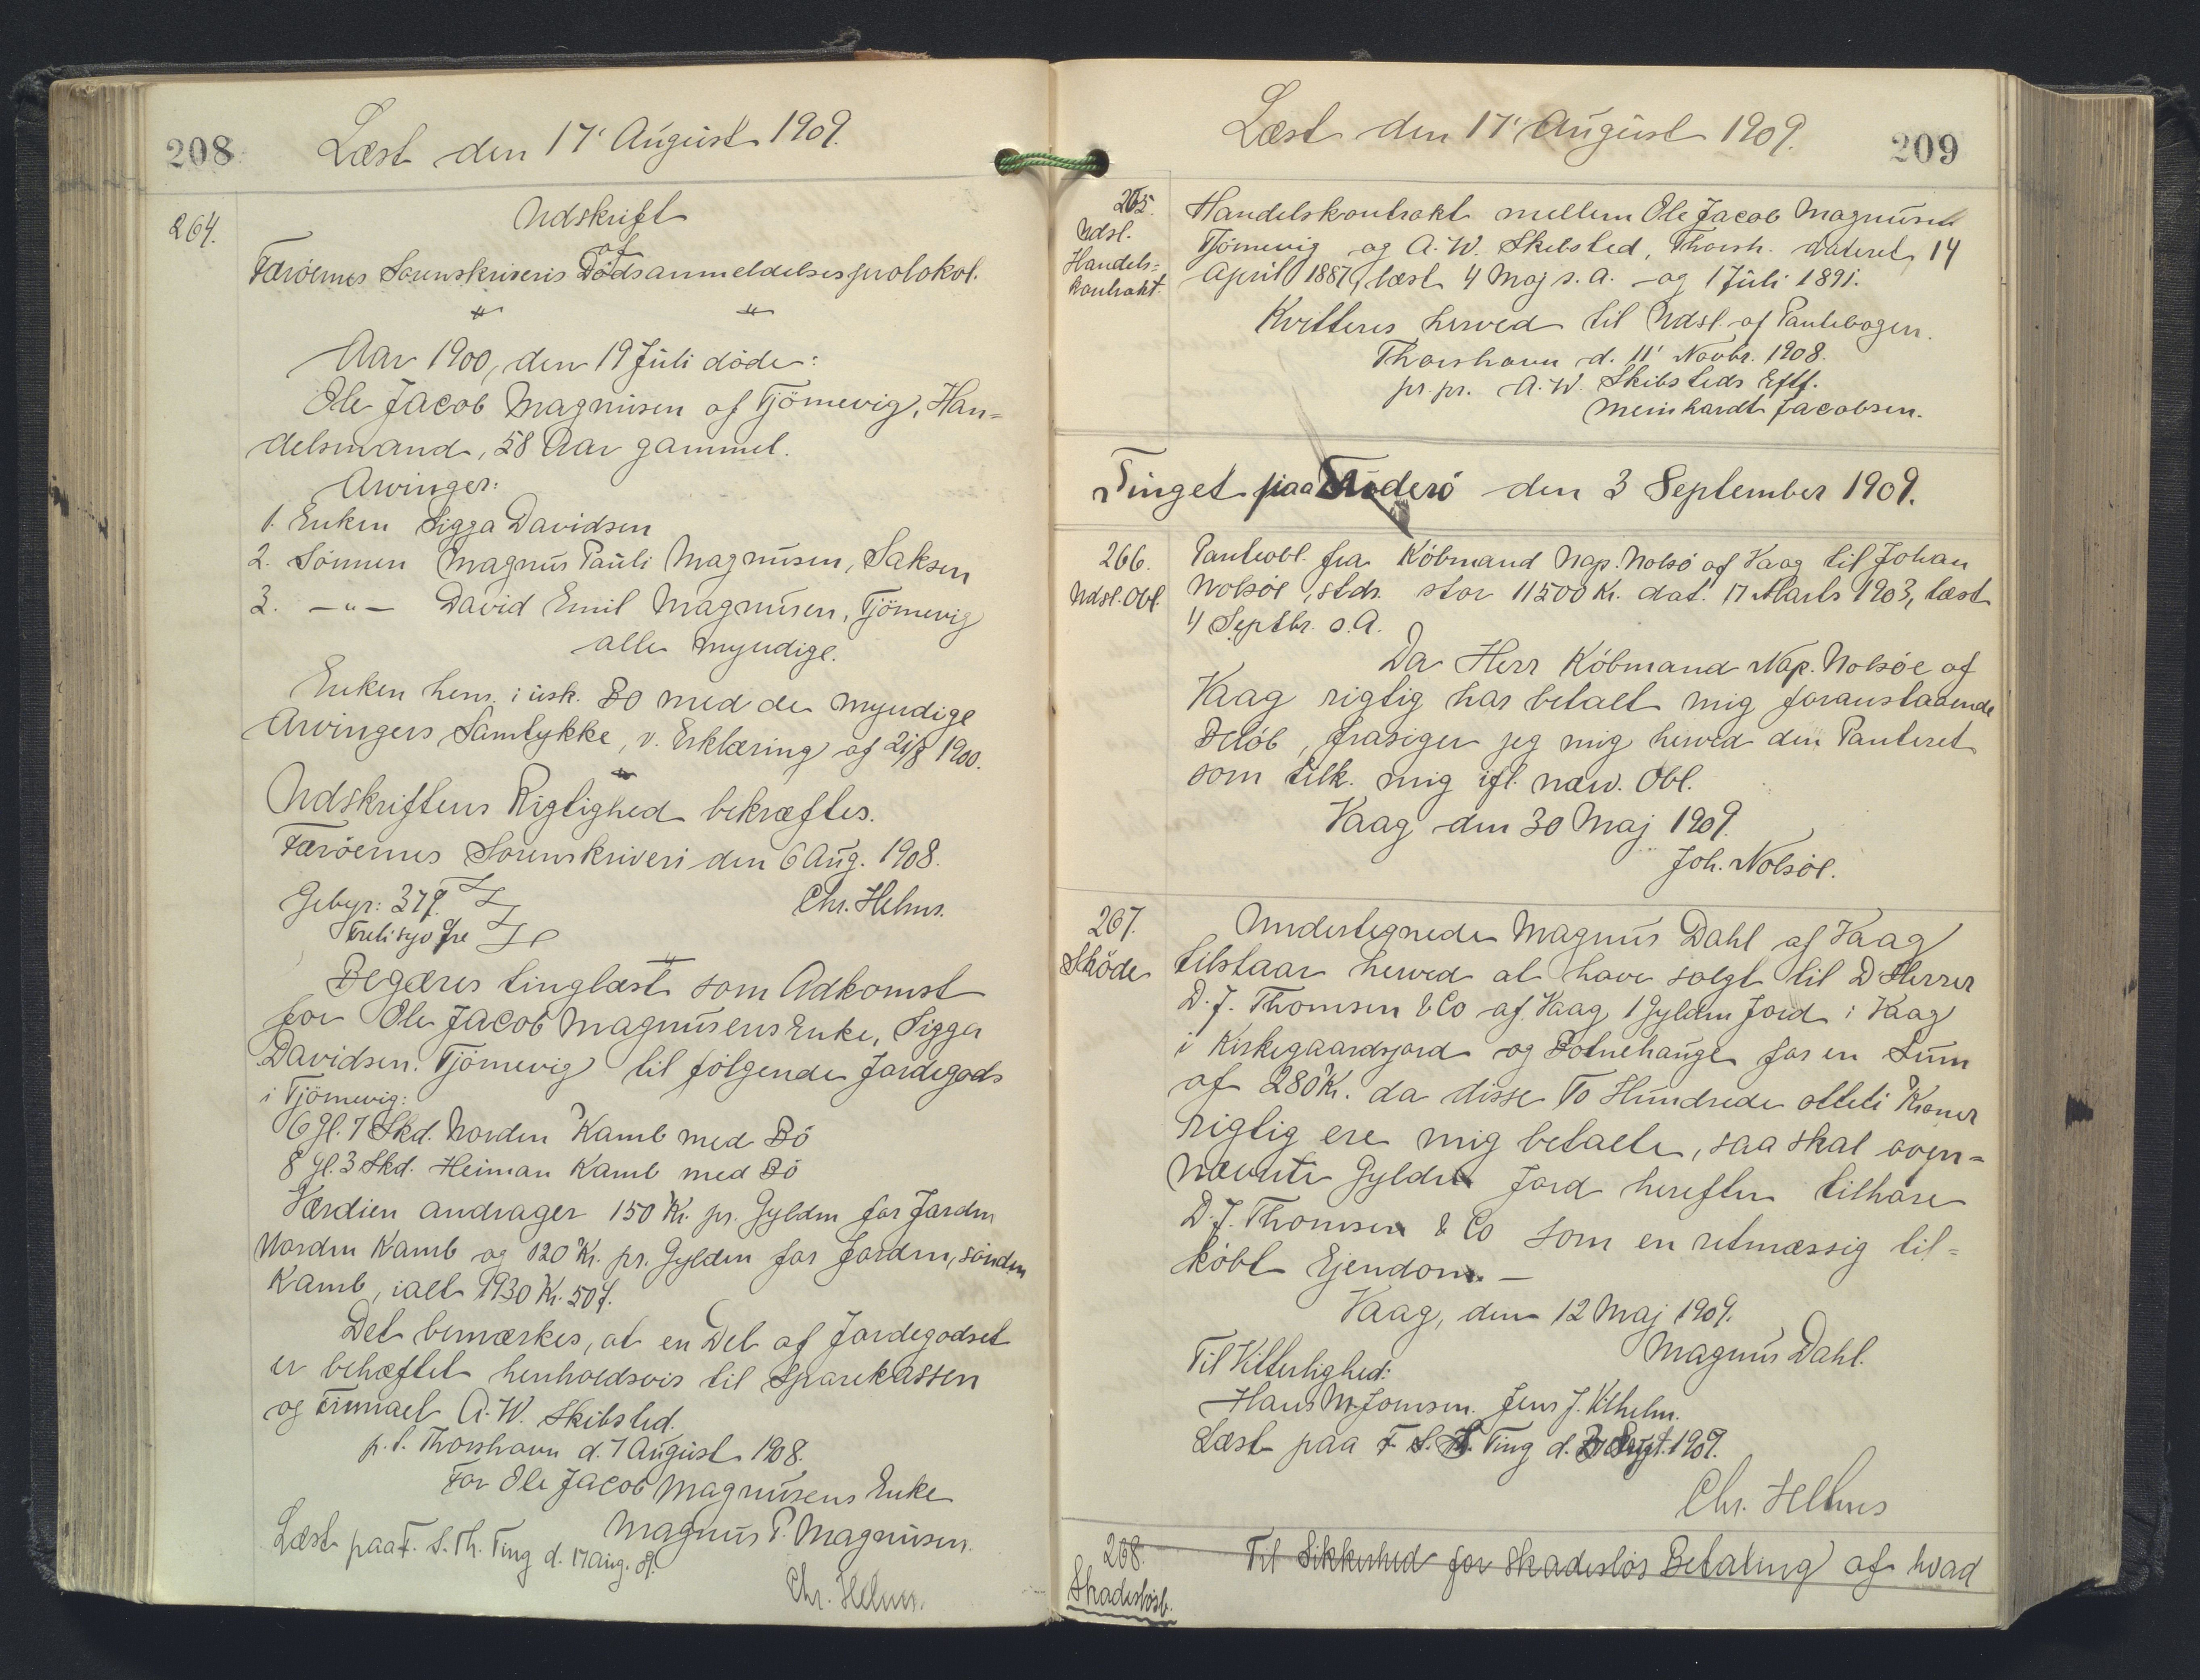 208
Læst den 17' August 1909.
264.
Udskrift
af
Færöernes Sorenskriveris Dödsanmeldelsesprotokol.
Aar 1900, den 19 Juli döde:
Ole Jacob Magnusen af Tjörnevig, Han=
delsmand, 58 Aar gammel.
Arvinger:
1. Enken Sigga Davidsen
2. Sönnen Magnus Pauli Magnusen, Saksen
3. —"— David Emil Magnusen, Tjörnevig
alle myndige.
Enken hens. i usk. Bo med de myndige
Arvingers Samtykke, v. Erklæring af 21/8 1900.
Udskriftens Rigtighed bekræftes.
Færöernes Sorenskriveri den 6 Aug. 1908.
Gebyr: 37 Ø. Chr. Helms.
Tretisyv Øre
Begæres tinglæst som Adkomst
for Ole Jacob Magnusens Enke, Sigga
Davidsen. Tjörnevig til fölgende Jordegods
i Tjörnevig:
6 Gl. 7 Skd. Norden Kamb med Bö
8 Gl. 3 Skd. Heiman Kamb med Bö
Værdien andrager 150 Kr. pr. Gylden for Jorden
Norden Kamb og 120 Kr. pr. Gylden for Jorden, sönden
Kamb, ialt 1930 Kr. 50 Ø.
Det bemærkes, at en Del af Jordegodset
er behæftet henholdsvis til Sparekassen
og Firmaet A. W. Skibsted.
p. t. Thorshavn d. 7 August 1908.
For Ole Jacob Magnusens Enke
Magnus P. Magnusen.
Læst paa F. S. Th. Ting d. 17 Aug. 09.
Chr. Helms.
Læst den 17' August 1909.
209
265.
Udsl.
Handels=
kontrakt.
Handelskontrakt mellem Ole Jacob Magnusen
Tjörnevig og A. W. Skibsted, Thorsh. dateret 14
April 1887, læst 4 Maj s. A. og 1 Juli 1891.
Kvitteres herved til Udsl. af Pantebogen.
Thorshavn d. 11' Novbr. 1908.
pr. pr. A. W. Skibsteds Eftf.
Meinhardt Jacobsen.
Tinget paa Suderö den 3 September 1909.
266.
Udsl. Obl.
Panteobl. fra Köbmand Nap. Nolsö af Vaag til Johan
Nolsöe, stds. stor 11500 Kr. dat. 17 Marts 1903, læst
4 Septbr. s. A.
Da Herr Köbmand Nap. Nolsöe af
Vaag rigtig har betalt mig foranstaaende
Belöb, frasiger jeg mig herved den Panteret
som tilk. mig ifl. næv. Obl.
Vaag den 30 Maj 1909.
Joh. Nolsöe.
267.
Sköde
Undertegnede Magnus Dahl af Vaag
tilstaar herved at have solgt til D'Herrer
D. J. Thomsen & Co af Vaag 1 Gylden Jord i Vaag
i Kirkegaardsjord og Botnehauge for en Sum
af 280 Kr. da disse To Hundrede otteti Kroner
rigtig ere mig betalte, saa skal oven=
nævnte Gylden Jord herefter tilhøre
D. J. Thomsen & Co som en retmæssig til=
köbt Ejendom. —
Vaag, den 12 Maj 1909.
Magnus Dahl.
Til Vitterlighed:
Hans M. Joensen. Jens J. Vilhelm.
Læst paa F. S. S. Ting d. 3 Sept. 1909.
Chr. Helms
268.
Skadeslösb.
Til Sikkerhed for skadeslös Betaling af hvad